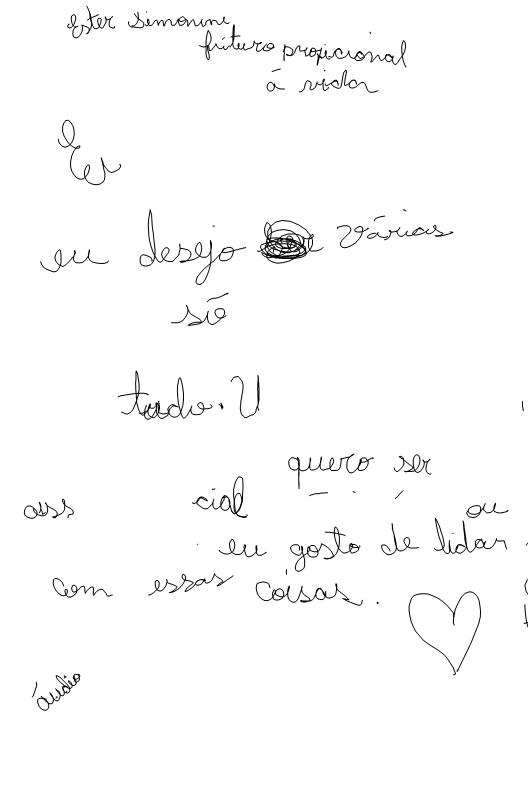 Ester Simonini
frituro profcional
á vida
Eu
eu desejo várias
sõ
tudo. U
quero ser
ass cial ou
eu gosto de lidar
com essas coisas.
áudio